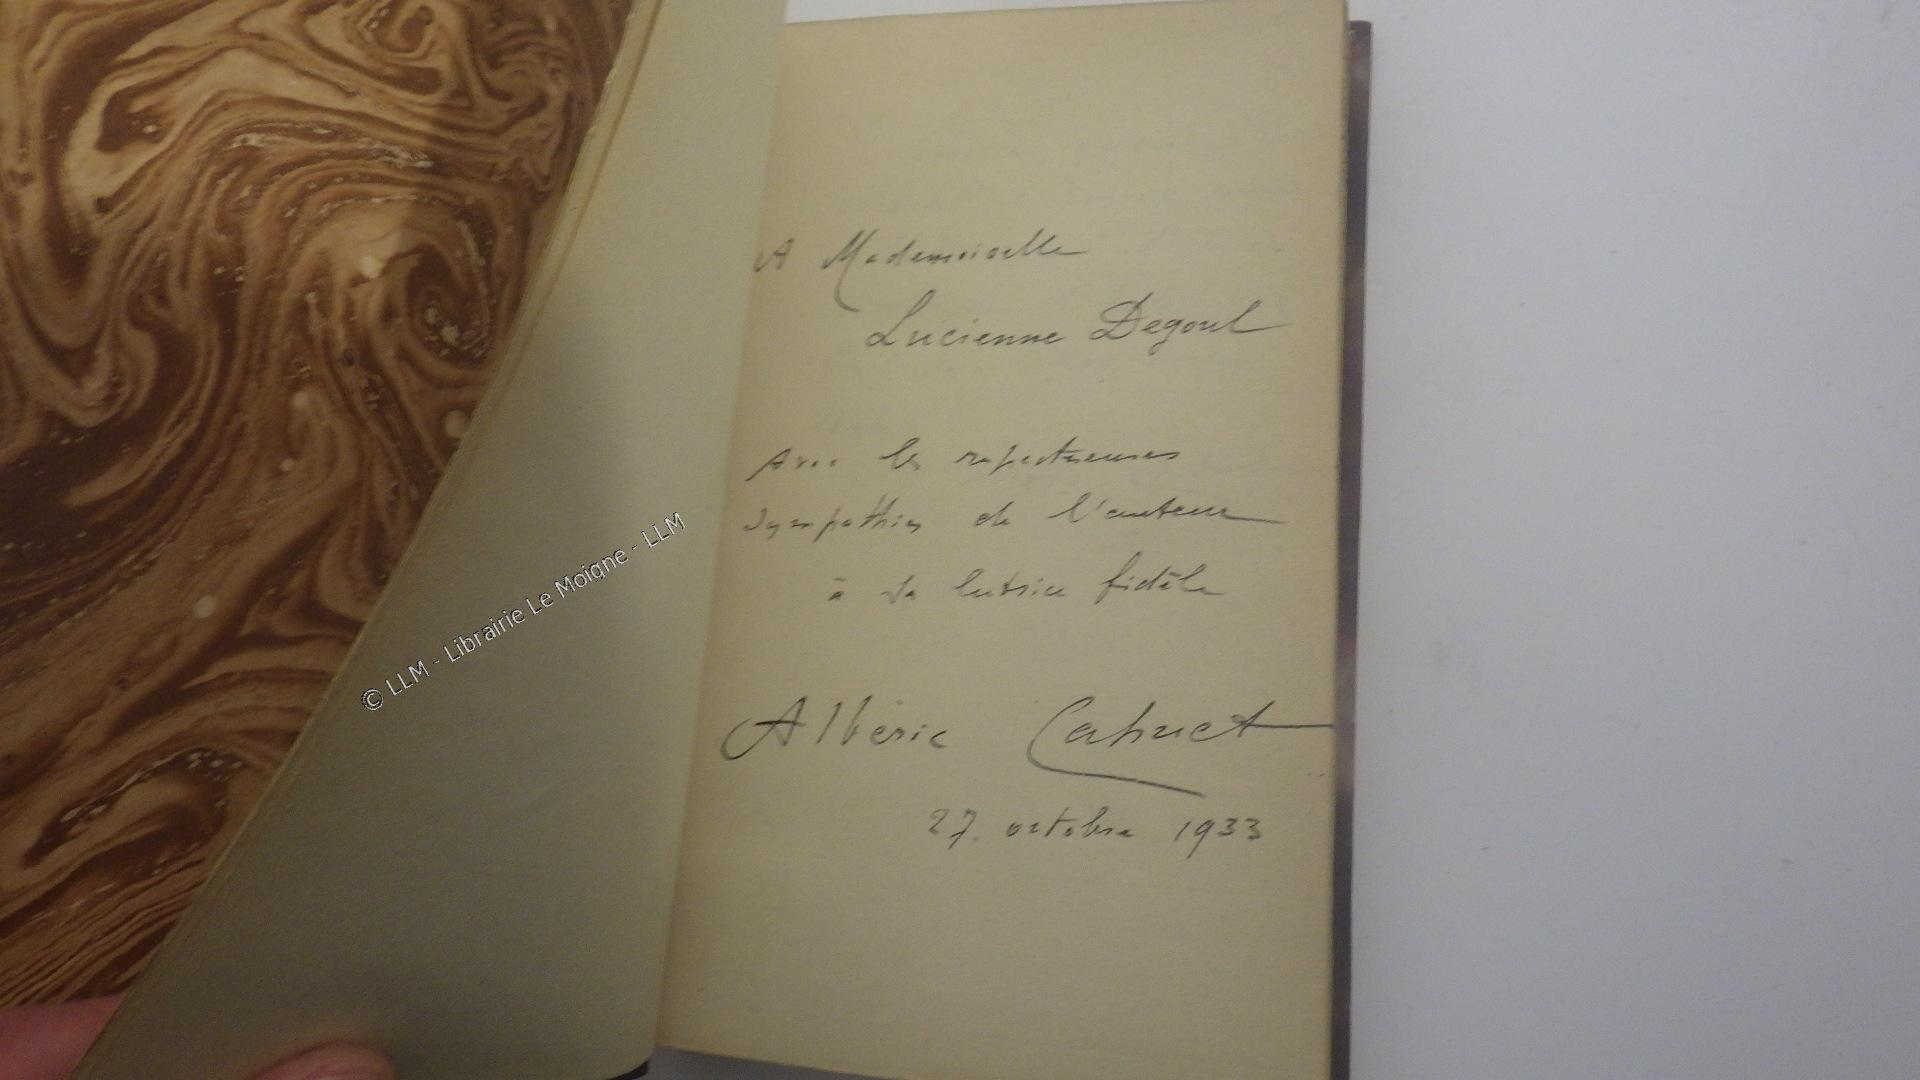 A Mademoiselle
Lucienne Degoul
Avec les respectueuses
sympathies de l'auteur
à sa lectrice fidèle
Albéric Cahuet
27. octobre 1933
© LLM - Librairie Le Moigne - LLM